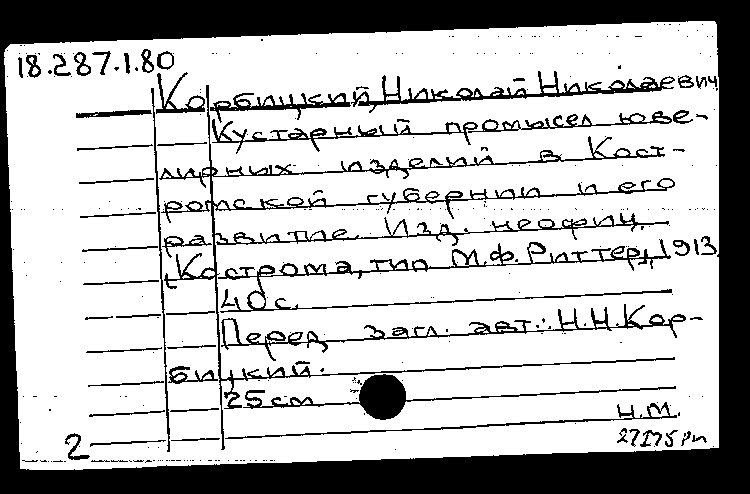 18.287.1.80
Корбицкий, Николай Николаевич
Кустарный промысел юве-
лирных изделий в Кост-
ромской губернии и его
развитие. Изд. неофиц.
[Кострома, тип. М.Ф. Риттер], 1913.
40 с.
Перед загл. авт.: Н.Н. Кор-
бицкий.
25 см
Н.М.
2